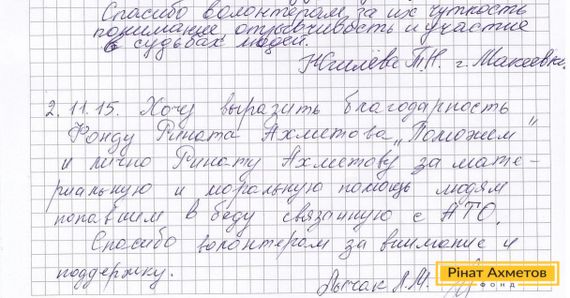 Спасибо волонтерам за их чуткость
понимание отзывчивость и участие
в судьбах людей.
Т.Н. г. Макеевка.
2.11.15. Хочу выразить благодарность
Фонду Рината Ахметова „Поможем"
и лично Ринату Ахметову за мате-
риальную и моральную помощь людям
попавшим в беду связанную с АТО.
Спасибо волонтерам за внимание и
поддержку.
Лычак Л.М.
Рінат Ахметов
ФОНД